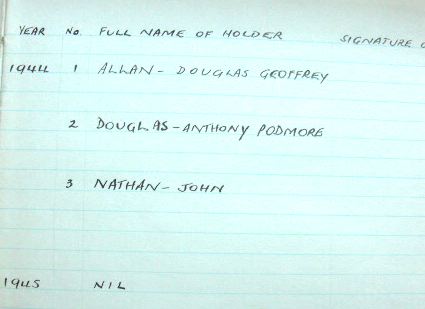 YEAR No. FULL NAME OF HOLDER SIGNATURE
1944 1 ALLAN - DOUGLAS GEOFFREY
2 DOUGLAS - ANTHONY PODMORE
3 NATHAN - JOHN
1945 NIL